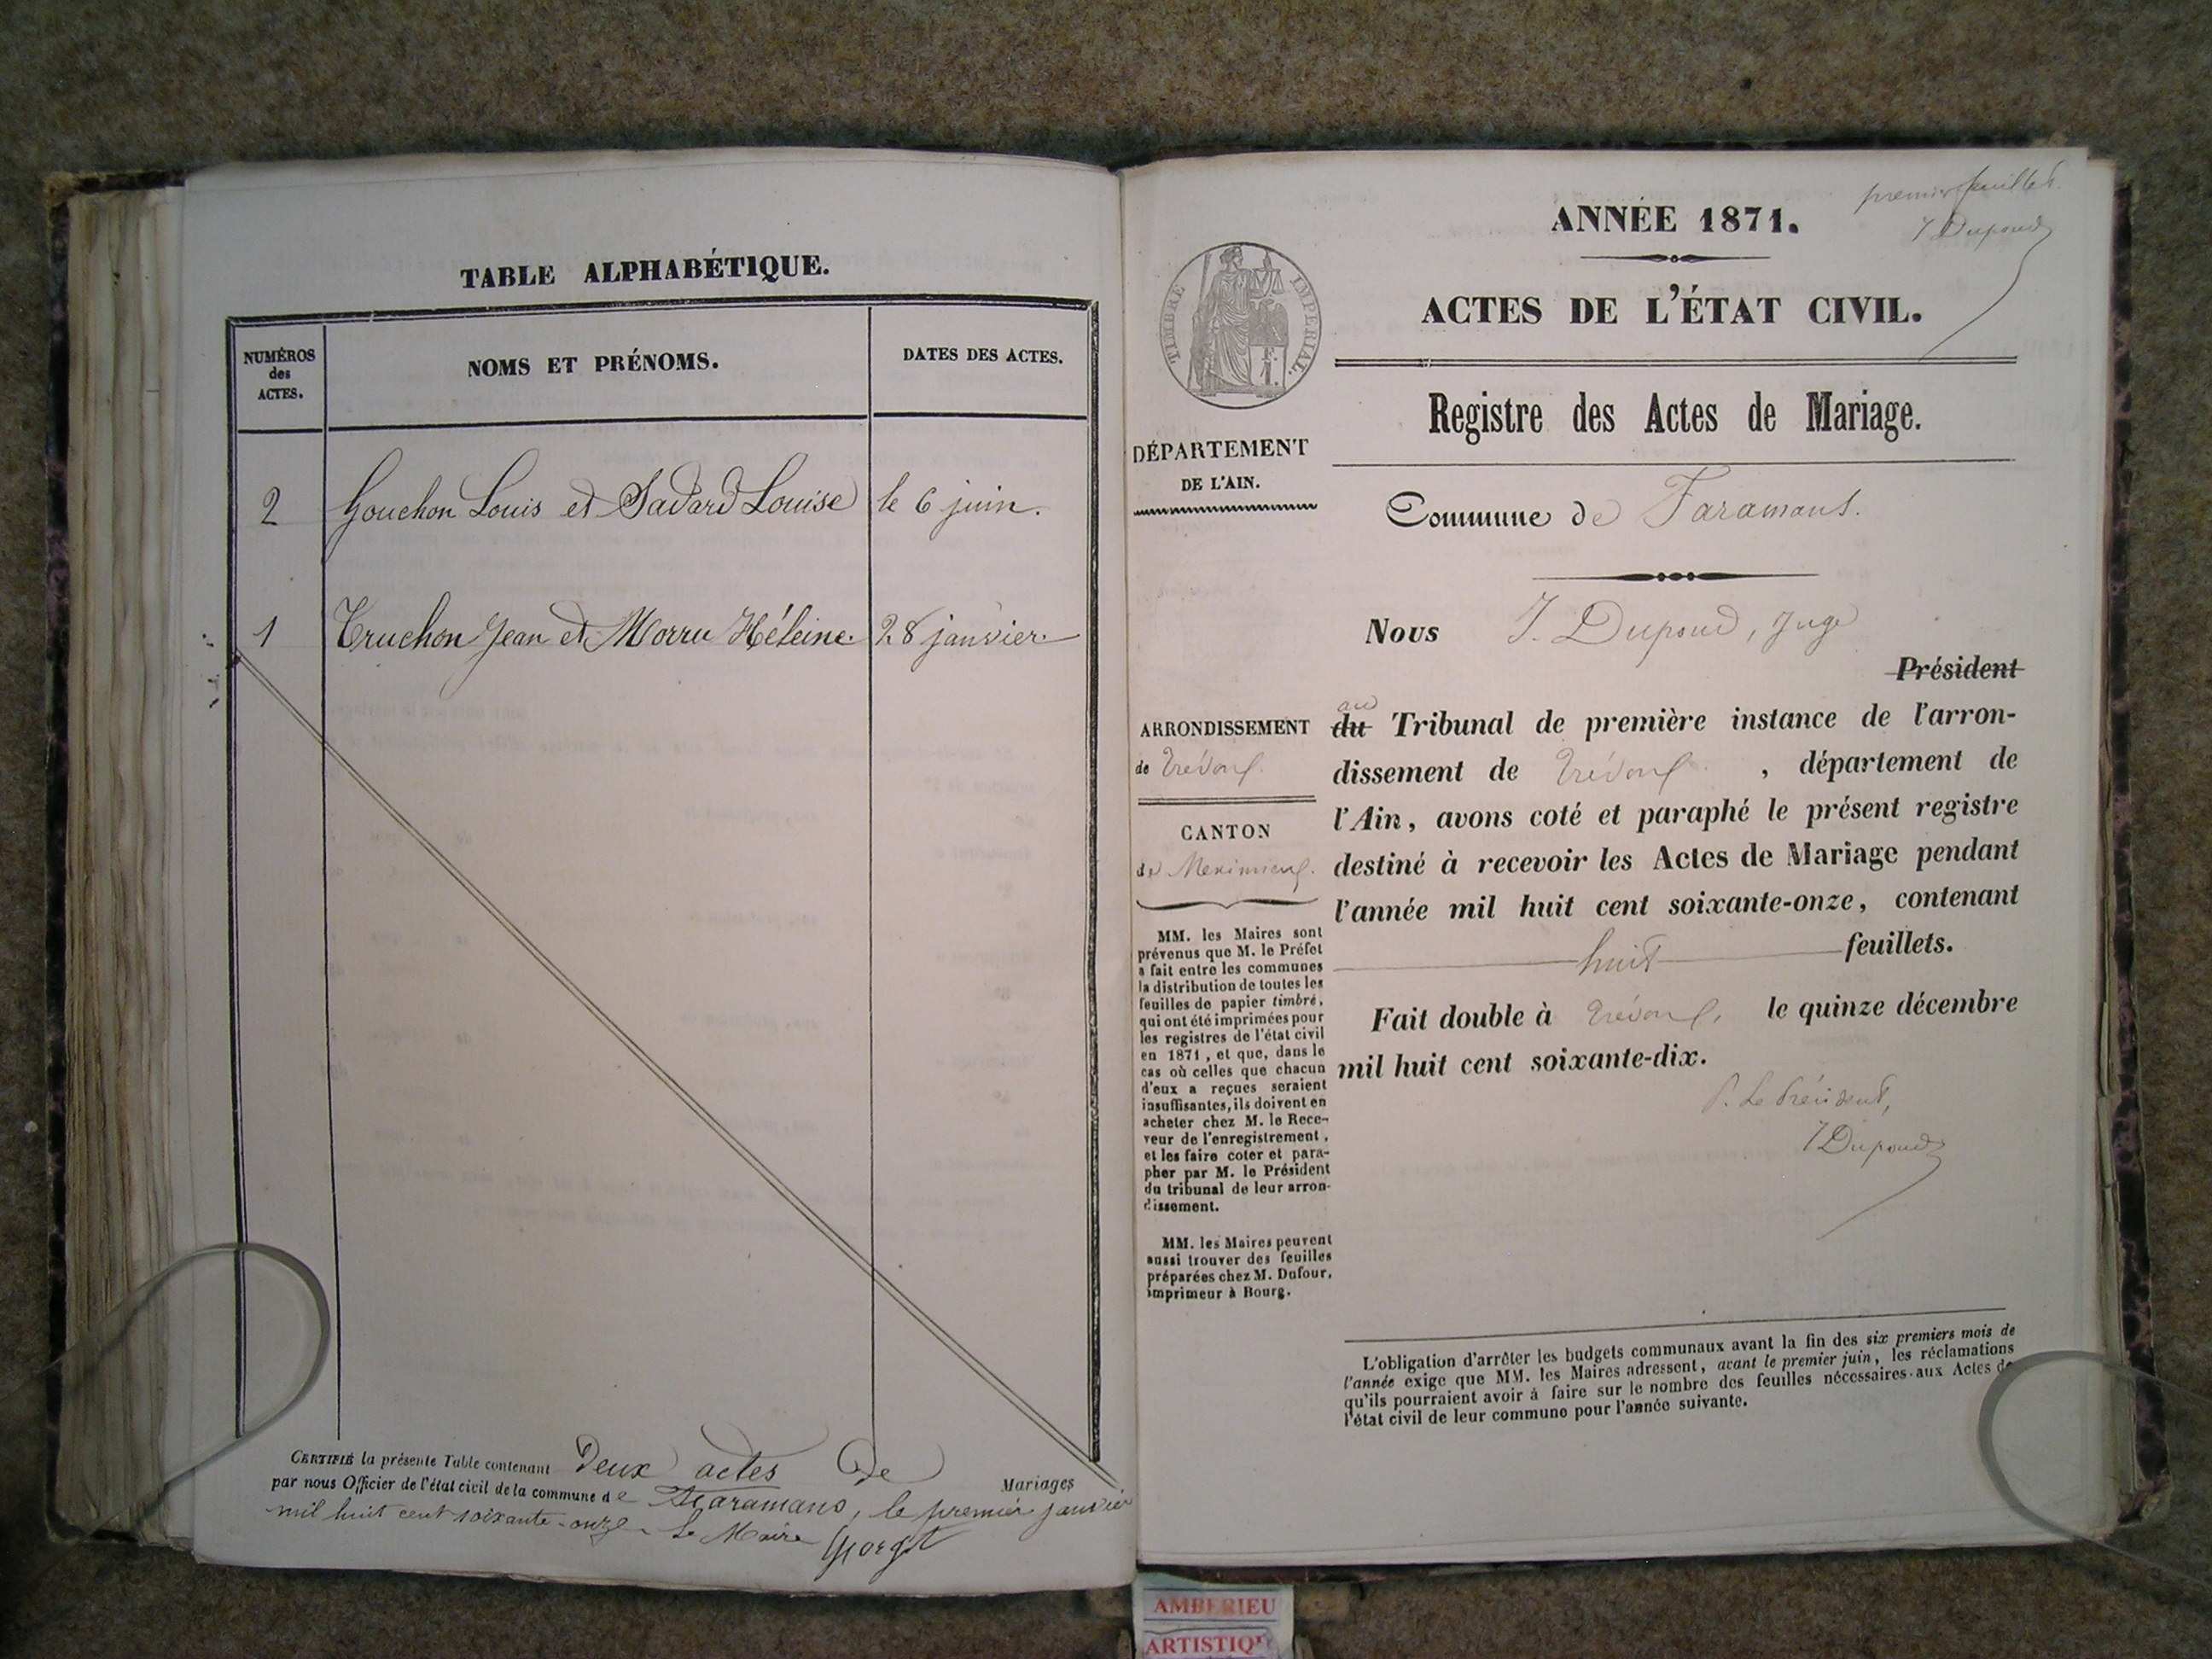 TABLE ALPHABÉTIQUE.
NUMÉROS
des
ACTES.
NOMS ET PRÉNOMS.
DATES DES ACTES.
2 Gouchon Louis et Sadard Louise le 6 juin.
1 Truchon Jean et Morru Héleine. 28 janvier.
CERTIFIÉ la présente Table contenant Deux actes de Mariages
par nous Officier de l'état civil de la commune de Faramans, le premier janvier
mil huit cent soixante-onze. Le Maire
premier feuillet.
J Dupond
ANNÉE 1871.
TIMBRE IMPÉRIAL.
1 F.
ACTES DE L'ÉTAT CIVIL.
Registre des Actes de Mariage.
DÉPARTEMENT
DE L'AIN.
Commune de Faramans.
Nous J. Dupond, Juge
Président
au
du Tribunal de première instance de l'arron-
dissement de Trévoux, département de
l'Ain, avons coté et paraphé le présent registre
destiné à recevoir les Actes de Mariage pendant
l'année mil huit cent soixante-onze, contenant
huit feuillets.
Fait double à Trévoux, le quinze décembre
mil huit cent soixante-dix.
P. Le Président,
J Dupond
ARRONDISSEMENT
de Trévoux.
CANTON
de Meximieux.
MM. les Maires sont
prévenus que M. le Préfet
a fait entre les communes
la distribution de toutes les
feuilles de papier timbré,
qui ont été imprimées pour
les registres de l'état civil
en 1871, et que, dans le
cas où celles que chacun
d'eux a reçues seraient
insuffisantes, ils doivent en
acheter chez M. le Rece-
veur de l'enregistrement,
et les faire coter et para-
pher par M. le Président
du tribunal de leur arron-
dissement.
MM. les Maires peuvent
aussi trouver des feuilles
préparées chez M. Dufour,
imprimeur à Bourg.
L'obligation d'arrêter les budgets communaux avant la fin des six premiers mois de
l'année exige que MM. les Maires adressent, avant le premier juin, les réclamations
qu'ils pourraient avoir à faire sur le nombre des feuilles nécessaires aux Actes de
l'état civil de leur commune pour l'année suivante.
AMBERIEU
ARTISTIQU